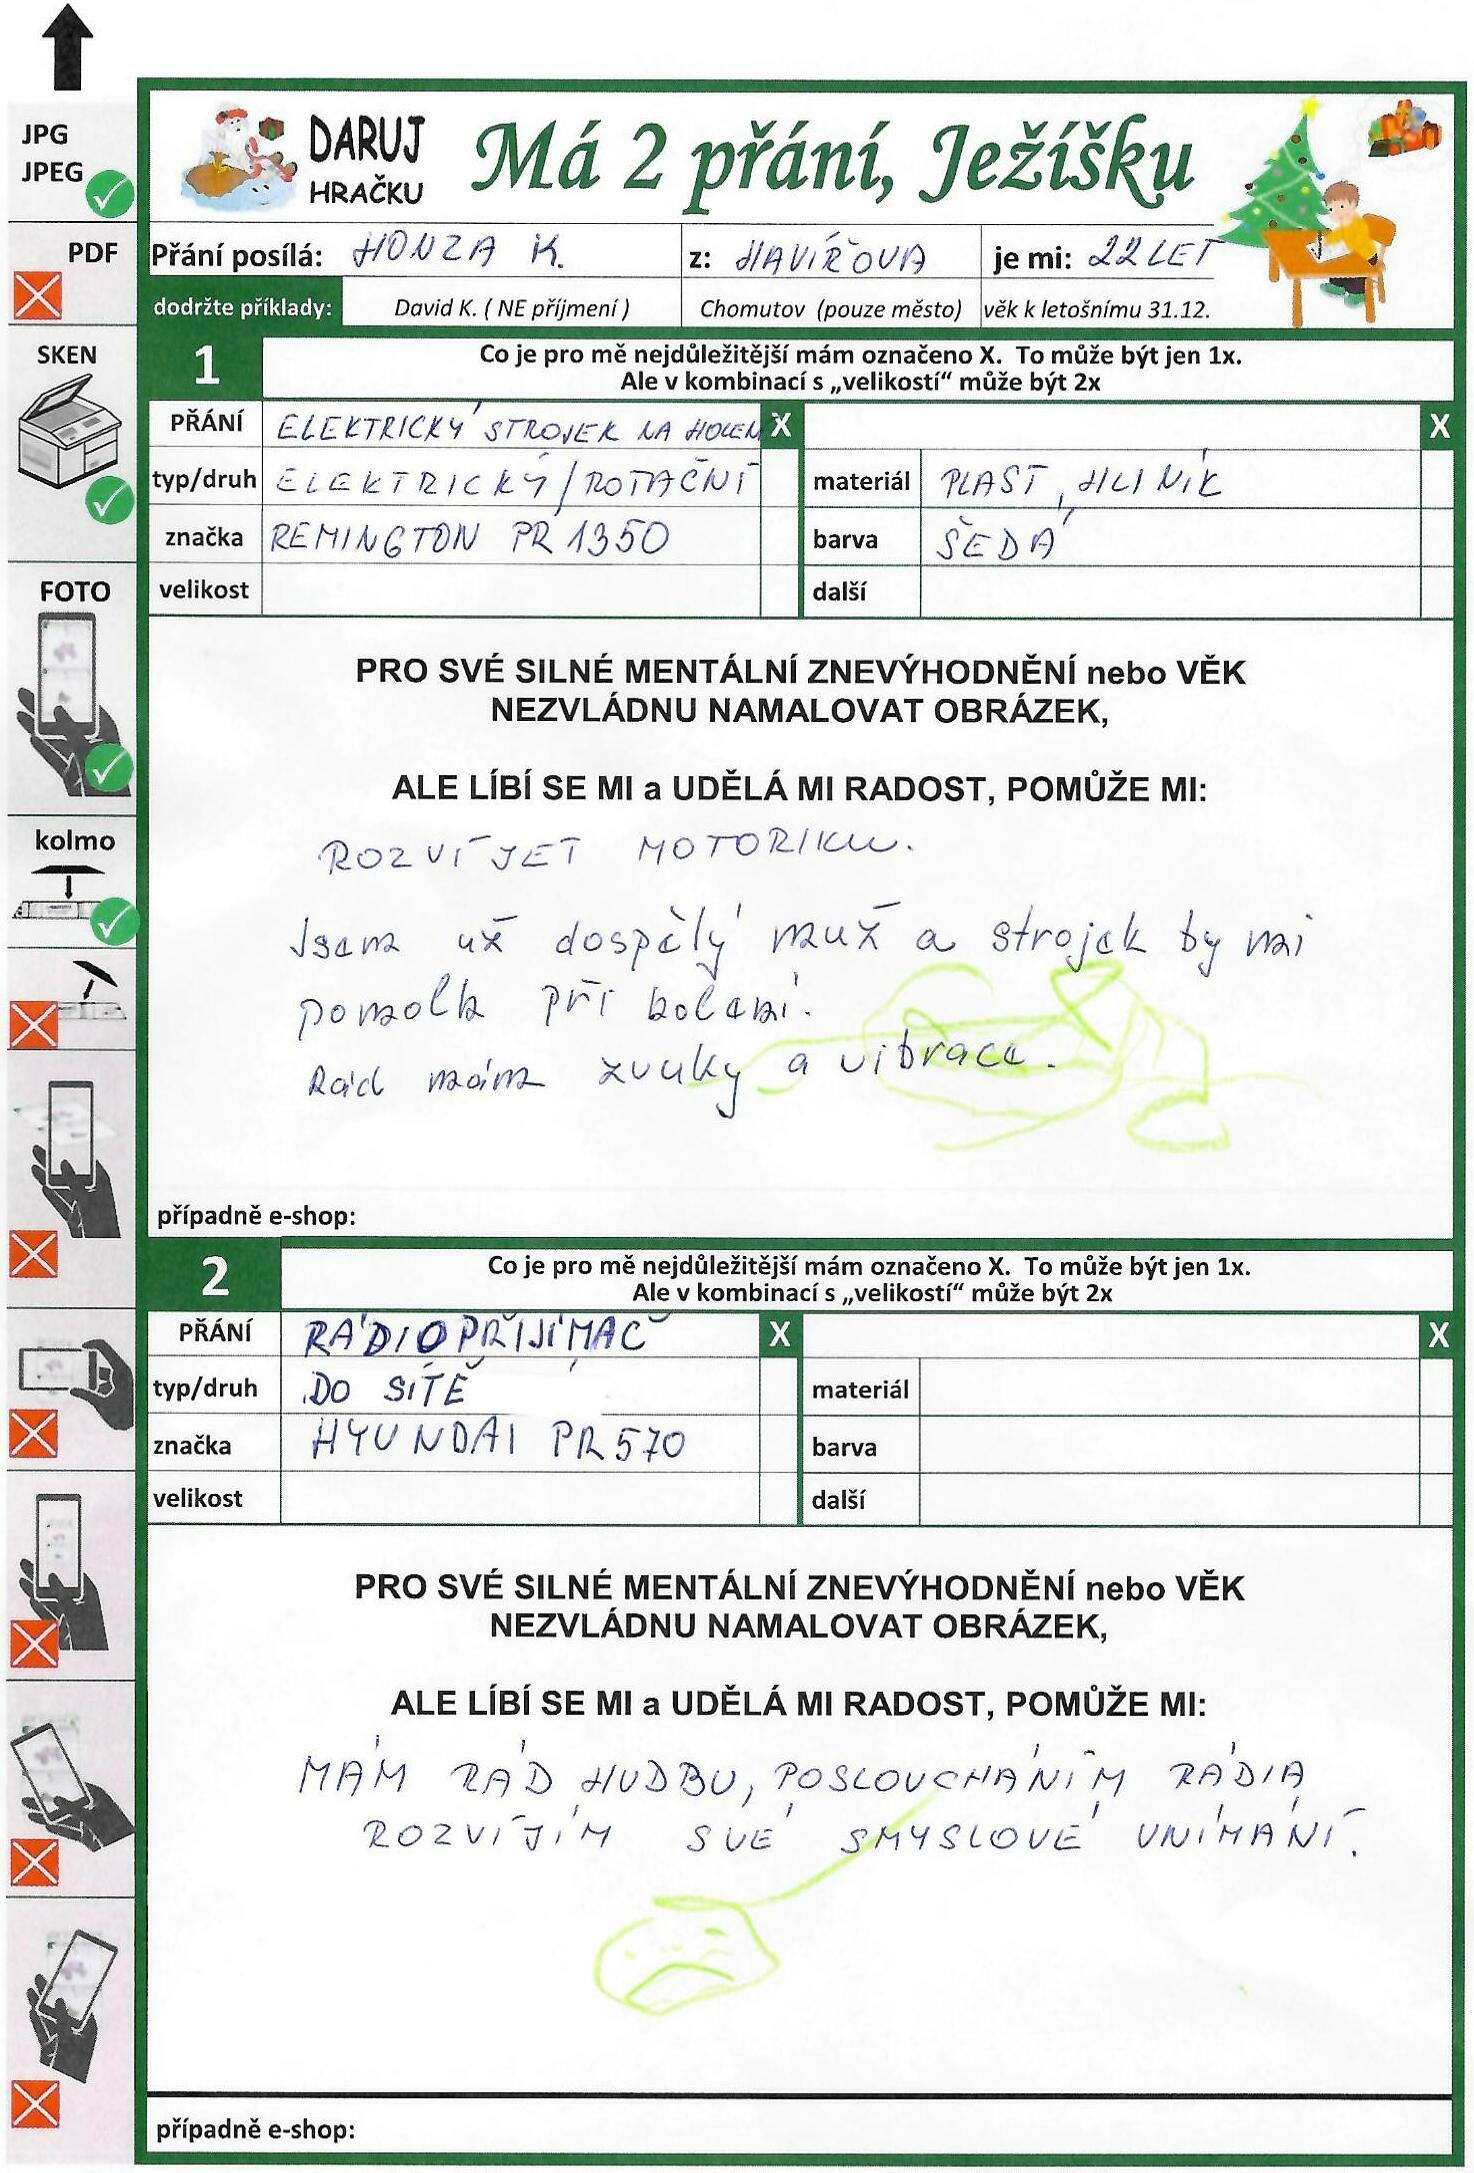 JPG
JPEG
PDF
SKEN
FOTO
kolmo
DARUJ
HRAČKU
Má 2 přání, Ježíšku
Přání posílá: HONZA K. z: HAVÍŘOVA je mi: 22 LET
dodržte příklady: David K. ( NE příjmení ) Chomutov (pouze město) věk k letošnímu 31.12.
1 Co je pro mě nejdůležitější mám označeno X. To může být jen 1x.
Ale v kombinací s „velikostí“ může být 2x
PŘÁNÍ ELEKTRICKÝ STROJEK NA HOLEN X X
typ/druh ELEKTRICKÝ/ROTAČNÍ materiál PLAST, HLINÍK
značka REMINGTON PR 1350 barva ŠEDÁ
velikost další
PRO SVÉ SILNÉ MENTÁLNÍ ZNEVÝHODNĚNÍ nebo VĚK
NEZVLÁDNU NAMALOVAT OBRÁZEK,
ALE LÍBÍ SE MI a UDĚLÁ MI RADOST, POMŮŽE MI:
ROZVÍJET MOTORIKU.
Jsem už dospělý muž a strojek by mi
pomohl při holení.
Rád mám zvuky a vibrace.
případně e-shop:
2 Co je pro mě nejdůležitější mám označeno X. To může být jen 1x.
Ale v kombinací s „velikostí“ může být 2x
PŘÁNÍ RÁDIOPŘIJÍMAČ X X
typ/druh DO SÍTĚ materiál
značka HYUNDAI PR 570 barva
velikost další
PRO SVÉ SILNÉ MENTÁLNÍ ZNEVÝHODNĚNÍ nebo VĚK
NEZVLÁDNU NAMALOVAT OBRÁZEK,
ALE LÍBÍ SE MI a UDĚLÁ MI RADOST, POMŮŽE MI:
MÁM RÁD HUDBU, POSLOUCHÁNÍM RÁDIA
ROZVÍJÍM SVÉ SMYSLOVÉ VNÍMÁNÍ.
případně e-shop: